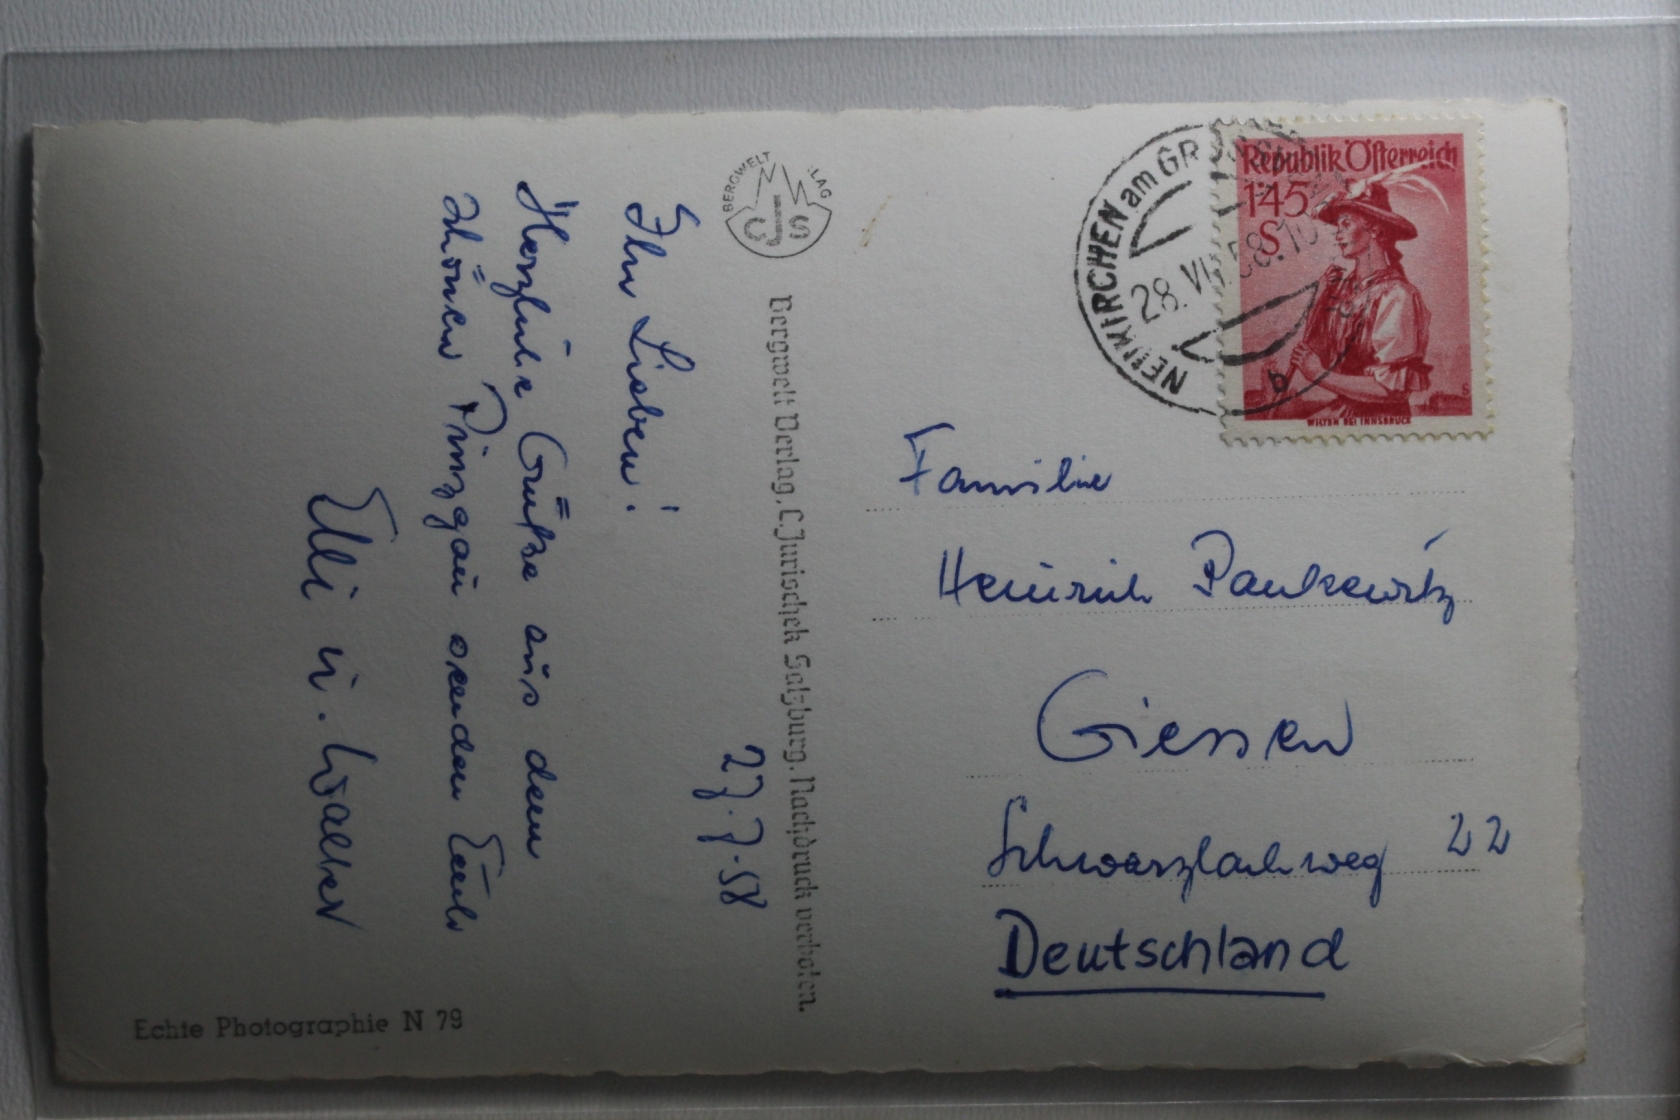 Ihr Lieben!
Herzliche Grüße aus dem
schönen Pinzgau senden Euch
Elli u. Walter
27.7.58
BERGWELT LAG
CJS
Bergwelt Verlag, C. Jurischek Salzburg. Nachdruck verboten.
Echte Photographie N 79
NEUKIRCHEN am GR
28. VII. 58. 10
b
Republik Österreich
1·45
S
WILTEN BEI INNSBRUCK
Familie
Heinrich Pankewitz
Giessen
Schwarzlachweg 22
Deutschland